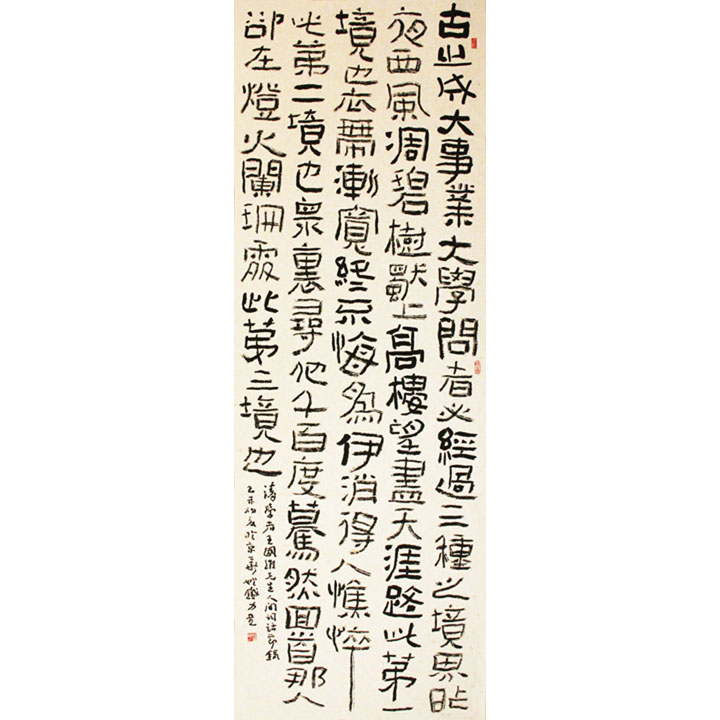 古之成大事業大學問者必經過三種之境界昨
夜西風凋碧樹獨上高樓望盡天涯路此第一
境也衣帶漸寬終不悔爲伊消得人憔悴
此第二境也眾裏尋他千百度驀然回首那人
卻在燈火闌珊處此第三境也
清學者王國維先生人間詞話節錄
於京華